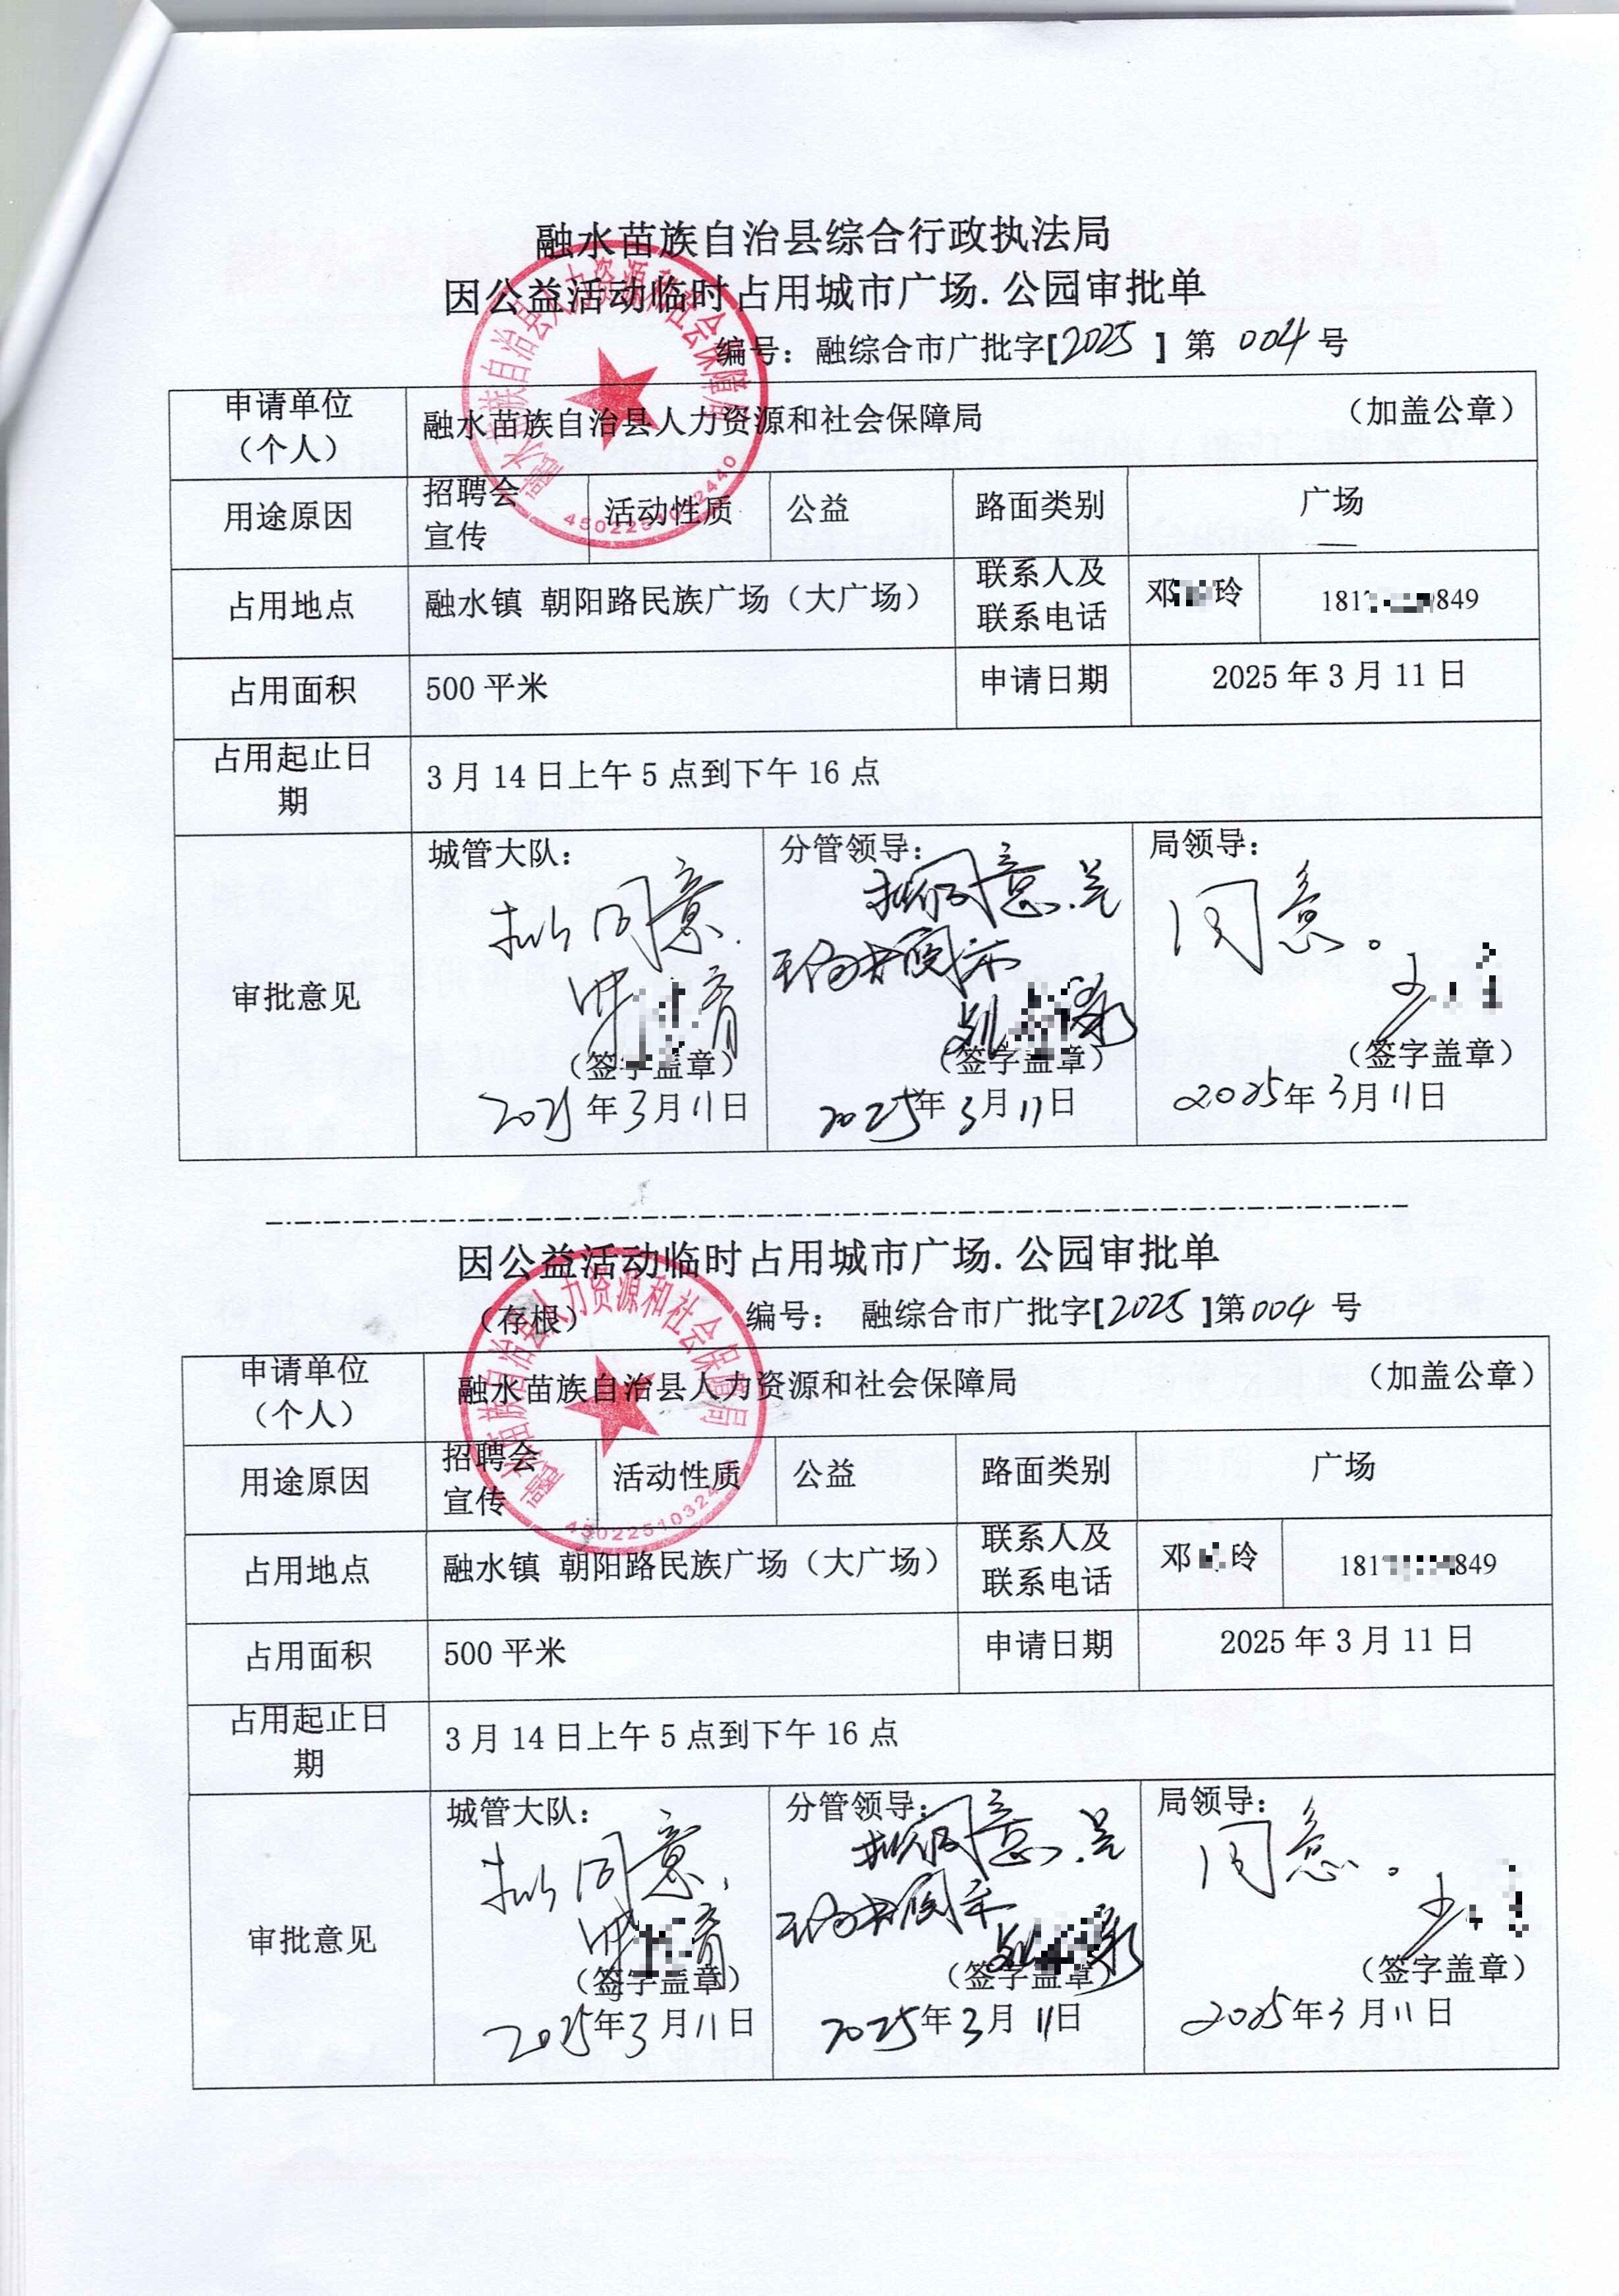 融水苗族自治县综合行政执法局
因公益活动临时占用城市广场.公园审批单
编号：融综合市广批字[2025] 第 004 号
申请单位
（个人）
融水苗族自治县人力资源和社会保障局
（加盖公章）
用途原因
招聘会
宣传
活动性质
公益
路面类别
广场
占用地点
融水镇 朝阳路民族广场（大广场）
联系人及
联系电话
邓 玲
181 849
占用面积
500 平米
申请日期
2025 年 3 月 11 日
占用起止日
期
3 月 14 日上午 5 点到下午 16 点
审批意见
城管大队：
拟同意.
（签字盖章）
2025 年 3 月 11 日
分管领导：
拟同意.呈
阅示
（签字盖章）
2025年 3月 11日
局领导：
同意。
（签字盖章）
2025年 3月 11日
融水苗族自治县人力资源和社会保障局
因公益活动临时占用城市广场.公园审批单
（存根）
编号： 融综合市广批字[2025]第004 号
申请单位
（个人）
融水苗族自治县人力资源和社会保障局
（加盖公章）
用途原因
招聘会
宣传
活动性质
公益
路面类别
广场
占用地点
融水镇 朝阳路民族广场（大广场）
联系人及
联系电话
邓 玲
181 849
占用面积
500 平米
申请日期
2025 年 3 月 11 日
占用起止日
期
3 月 14 日上午 5 点到下午 16 点
审批意见
城管大队：
拟同意.
（签字盖章）
2025年3月11日
分管领导：
拟同意.呈
阅示
（签字盖章）
2025年 3月 11日
局领导：
同意。
（签字盖章）
2025年3月11日
融水苗族自治县人力资源和社会保障局